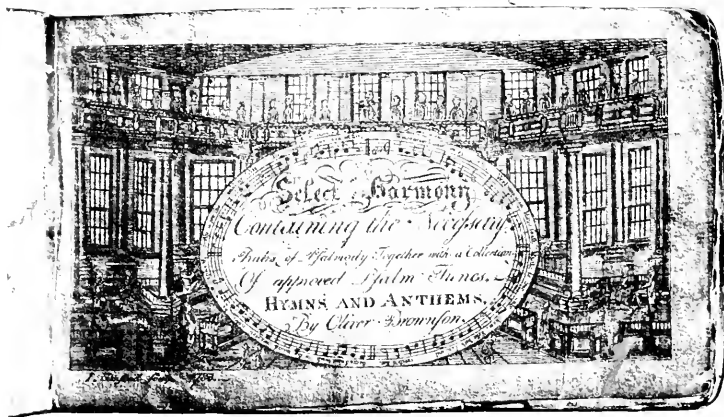 Select Harmony
Containing the Necessary
Rules of Psalmody Together with a Collection
Of approved Psalm Tunes.
HYMNS, AND ANTHEMS.
By Oliver Brownson.